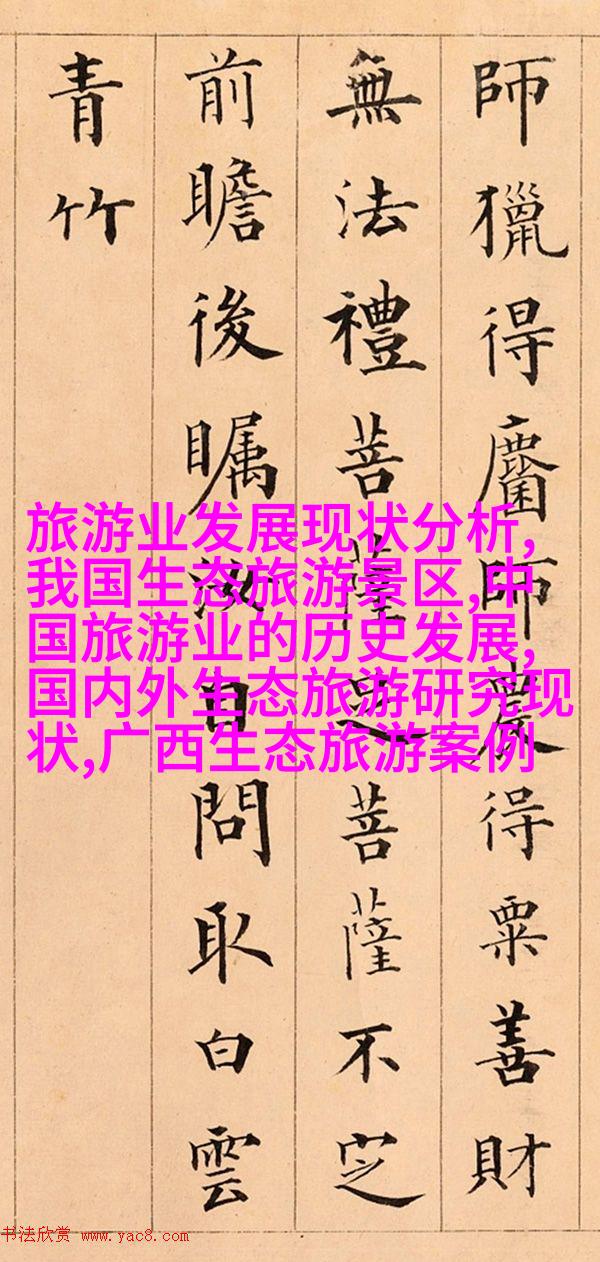 師獵得麕師得粟善財
無法禮菩薩菩薩不定
前瞻後矚汝自問取白雲
青竹
旅游业发展现状分析,
我国生态旅游景区,中
国旅游业的历史发展,
国内外生态旅游研究现
状,广西生态旅游案例
书法欣赏 www.yac8.com